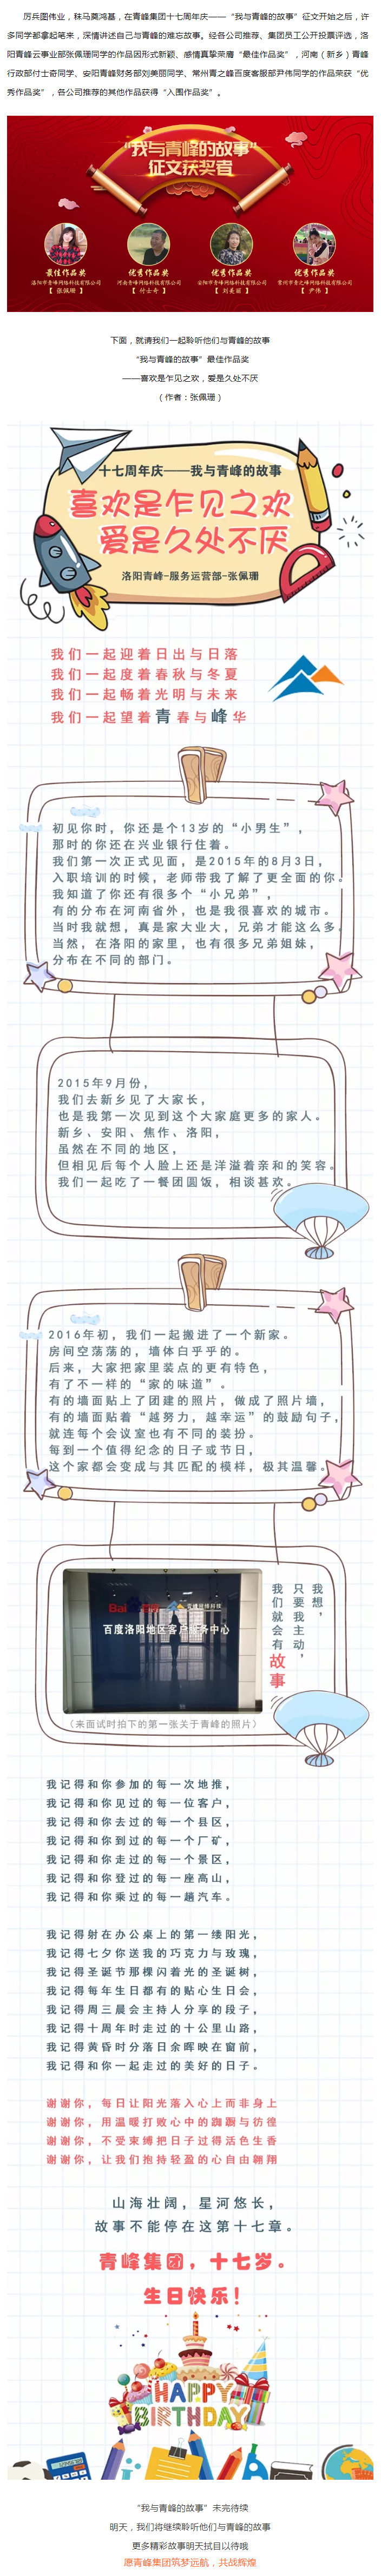 厉兵图伟业，秣马奠鸿基，在青峰集团十七周年庆——“我与青峰的故事”征文开始之后，许
多同学都拿起笔来，深情讲述自己与青峰的难忘故事。经各公司推荐、集团员工公开投票评选，洛
阳青峰云事业部张佩珊同学的作品因形式新颖、感情真挚荣膺“最佳作品奖”，河南（新乡）青峰
行政部付士奇同学、安阳青峰财务部刘美丽同学、常州青之峰百度客服部尹伟同学的作品荣获“优
秀作品奖”，各公司推荐的其他作品获得“入围作品奖”。
“我与青峰的故事”
征文获奖者
最佳作品奖 优秀作品奖 优秀作品奖 优秀作品奖
洛阳市青峰网络科技有限公司 河南青峰网络科技有限公司 安阳市青峰网络科技有限公司 常州市青之峰网络科技有限公司
【 张佩珊 】 【 付士奇 】 【 刘美丽 】 【 尹伟 】
下面，就请我们一起聆听他们与青峰的故事
“我与青峰的故事”最佳作品奖
——喜欢是乍见之欢，爱是久处不厌
（作者：张佩珊）
十七周年庆——我与青峰的故事
喜欢是乍见之欢
爱是久处不厌
洛阳青峰-服务运营部-张佩珊
我们一起迎着日出与日落
我们一起度着春秋与冬夏
我们一起畅着光明与未来
我们一起望着青春与峰华
初见你时，你还是个13岁的“小男生”，
那时的你还在兴业银行住着。
我们第一次正式见面，是2015年的8月3日，
入职培训的时候，老师带我了解了更全面的你。
我知道了你还有很多个“小兄弟”，
有的分布在河南省外，也是我很喜欢的城市。
当时我就想，真是家大业大，兄弟才能这么多。
当然，在洛阳的家里，也有很多兄弟姐妹，
分布在不同的部门。
2015年9月份，
我们去新乡见了大家长，
也是我第一次见到这个大家庭更多的家人。
新乡、安阳、焦作、洛阳，
虽然在不同的地区，
但相见后每个人脸上还是洋溢着亲和的笑容。
我们一起吃了一餐团圆饭，相谈甚欢。
2016年初，我们一起搬进了一个新家。
房间空荡荡的，墙体白乎乎的。
后来，大家把家里装点的更有特色，
有了不一样的“家的味道”。
有的墙面贴上了团建的照片，做成了照片墙，
有的墙面贴着“越努力，越幸运”的鼓励句子，
就连每个会议室也有不同的装扮。
每到一个值得纪念的日子或节日，
这个家都会变成与其匹配的模样，极其温馨。
百度洛阳地区客户服务中心
（来面试时拍下的第一张关于青峰的照片）
我想，
只要我主动，
我们就会有故事
我记得和你参加的每一次地推，
我记得和你见过的每一位客户，
我记得和你去过的每一个县区，
我记得和你到过的每一个厂矿，
我记得和你走过的每一个景区，
我记得和你登过的每一座高山，
我记得和你乘过的每一趟汽车。
我记得射在办公桌上的第一缕阳光，
我记得七夕你送我的巧克力与玫瑰，
我记得圣诞节那棵闪着光的圣诞树，
我记得每年生日都有的贴心生日会，
我记得周三晨会主持人分享的段子，
我记得十周年时走过的十公里山路，
我记得黄昏时分落日余晖映在窗前，
我记得和你一起走过的美好的日子。
谢谢你，每日让阳光落入心上而非身上
谢谢你，用温暖打败心中的踟蹰与彷徨
谢谢你，不受束缚把日子过得活色生香
谢谢你，让我们抱持轻盈的心自由翱翔
山海壮阔，星河悠长，
故事不能停在这第十七章。
青峰集团，十七岁。
生日快乐！
HAPPY
BIRTHDAY
“我与青峰的故事”未完待续
明天，我们将继续聆听他们与青峰的故事
更多精彩故事明天拭目以待哦
愿青峰集团筑梦远航，共战辉煌